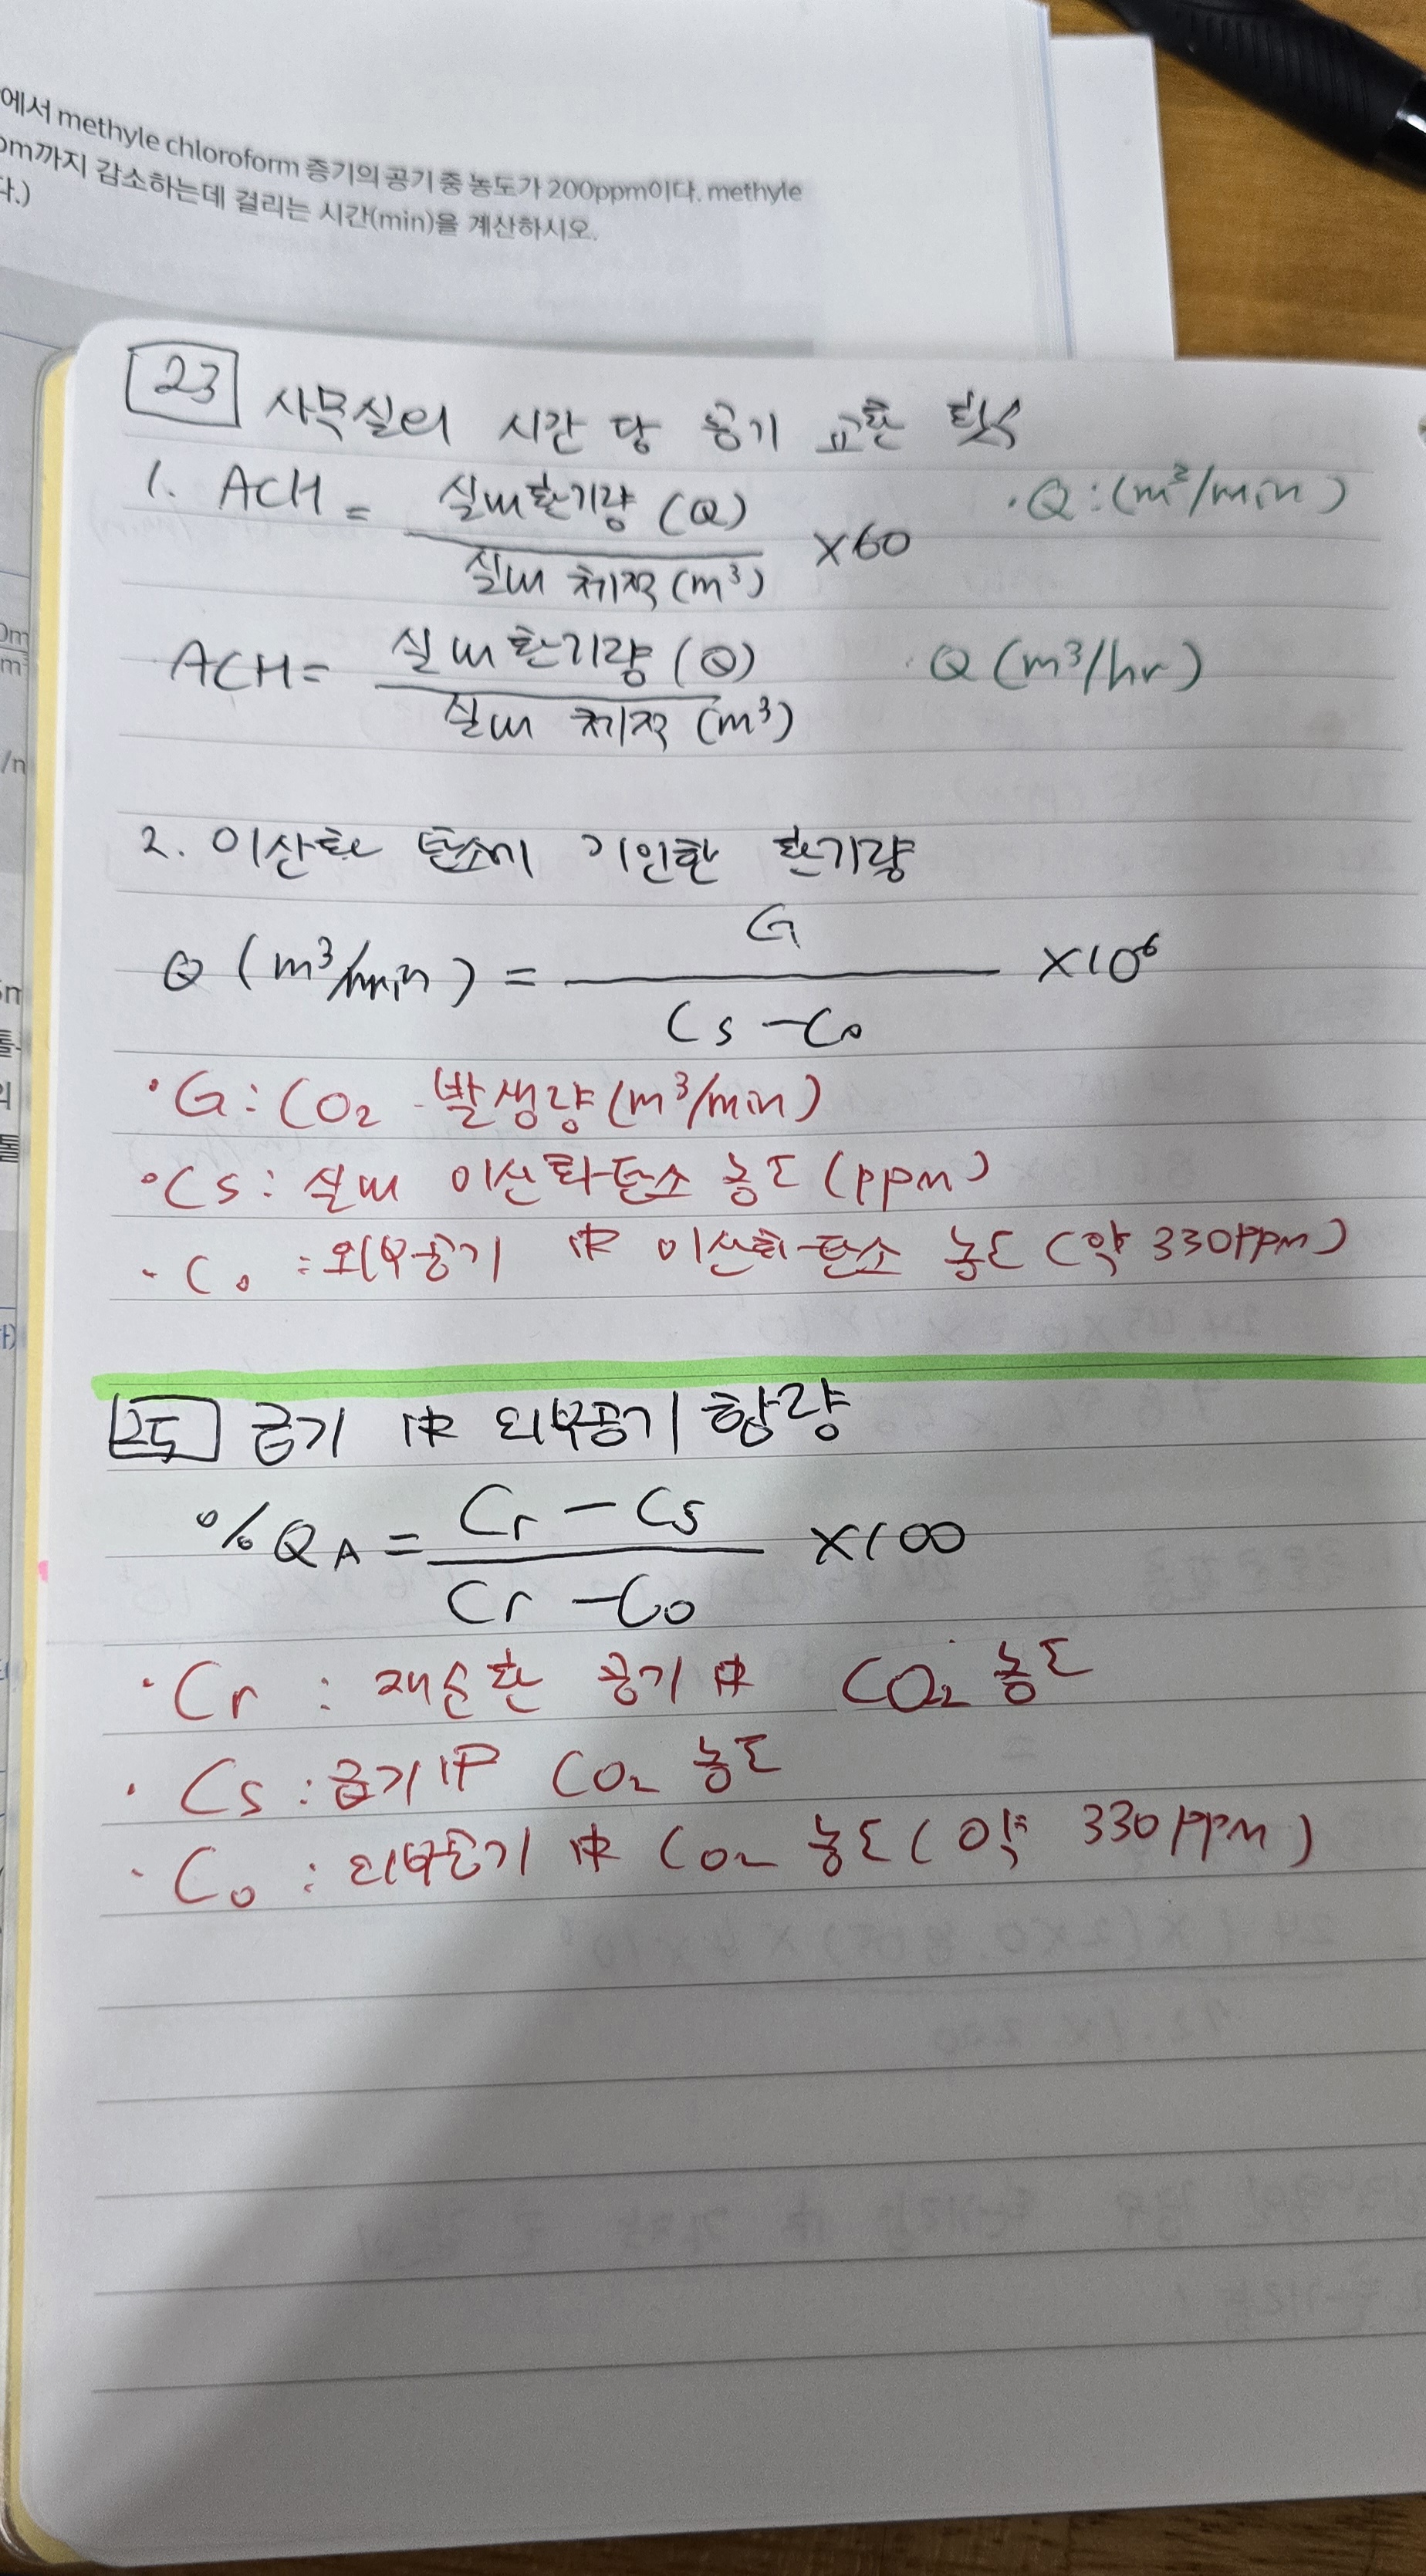 에서 methyle chloroform 증기의 공기 중 농도가 200ppm이다. methyle
om까지 감소하는데 걸리는 시간(min)을 계산하시오.
다.)
23 사무실의 시간 당 공기 교환 횟수
1. ACH = 실내환기량 (Q) / 실내 체적 (m³) ×60 · Q : (m³/min)
ACH = 실내환기량 (Q) / 실내 체적 (m³) · Q (m³/hr)
2. 이산화 탄소에 기인한 환기량
Q (m³/min) = G / Cs - Co ×10⁶
· G : CO₂ 발생량 (m³/min)
· Cs : 실내 이산화탄소 농도 (ppm)
· Co : 외부공기 中 이산화탄소 농도 (약 330ppm)
25 급기 中 외부공기 함량
% QA = Cr - Cs / Cr - Co ×100
· Cr : 재순환 공기 中 CO₂ 농도
· Cs : 급기 中 CO₂ 농도
· Co : 외부공기 中 CO₂ 농도 (약 330ppm)